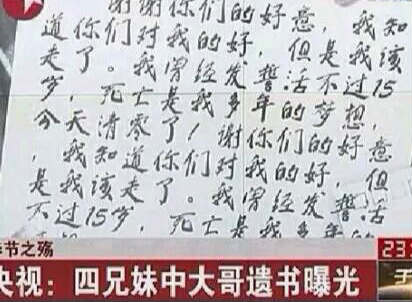 谢谢你们的好意，我知
道你们对我的好，但是我该
走了。我曾经发誓活不过15
岁，死亡是我多年的梦想，
今天清零了！谢你们的好意
，我知道你们对我的好，但
是我该走了。我曾经发誓活
不过15岁，死亡是我多
节之殇
央视：四兄妹中大哥遗书曝光
23: